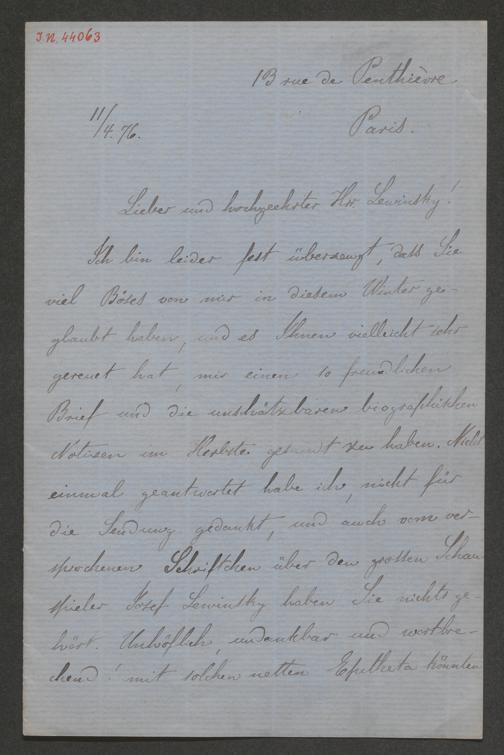 I.N. 44063
13 rue de Penthièvre
11/4. 76.
Paris.
Lieber und hochgeehrter Hr. Lewinsky!
Ich bin leider fest überzeugt, dass Sie
viel Böses von mir in diesem Winter ge-
glaubt haben, und es Ihnen vielleicht sehr
gereuet hat, mir einen so freundlichen
Brief und die unschätzbaren biographischen
Notizen im Herbste gesandt zu haben. Nicht
einmal geantwortet habe ich, nicht für
die Sendung gedankt, und auch vom ver-
sprochenen Schriftchen über den grossen Schau
spieler Josef Lewinsky haben Sie nichts ge-
hört. Unhöflich, undankbar und wortbre-
chend! mit solchen netten Epitheta könnten